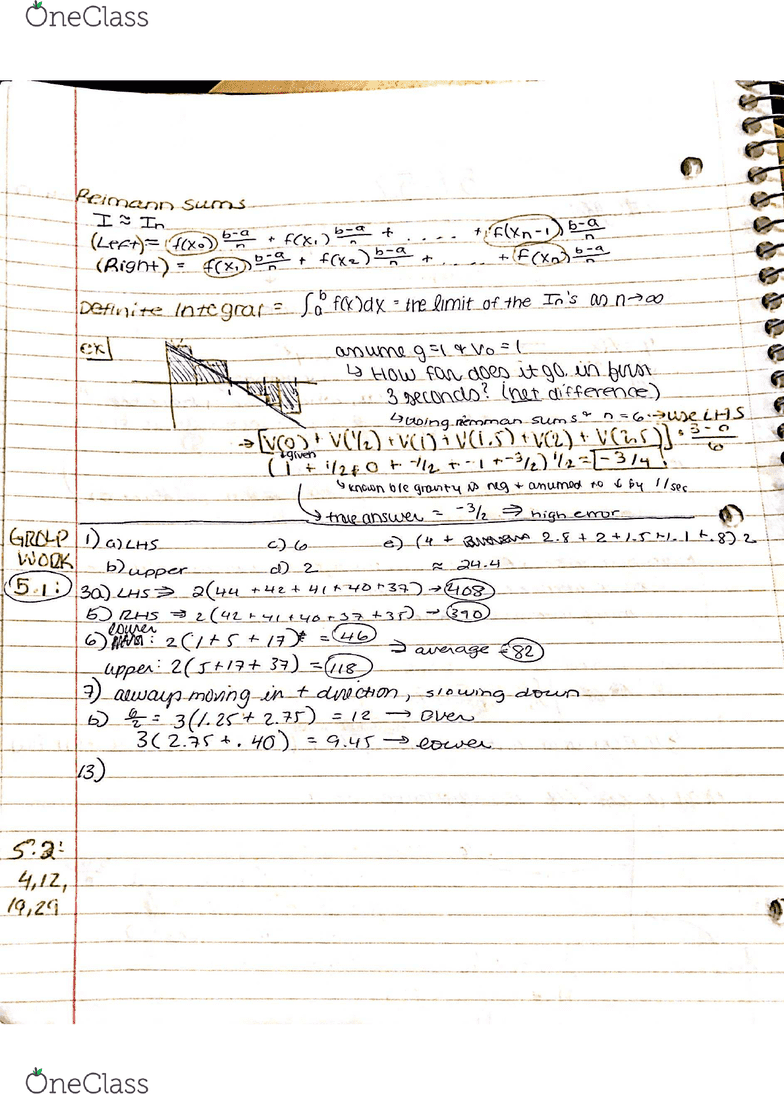 OneClass
Reimann sums
I ≈ In
(Left) = f(x₀) b-a/n + f(x₁) b-a/n + .... + f(xn-1) b-a/n
(Right) = f(x₁) b-a/n + f(x₂) b-a/n + .... + f(xn) b-a/n
Definite Integral = ∫ₐᵇ f(x)dx = the limit of the In's as n→∞
ex]
assume g=1 & V₀ = 1
↳ How far does it go in first
3 seconds? (net difference)
↳ using riemman sums & n = 6 → use LHS
→ [V(0) + V(1/2) + V(1) + V(1.5) + V(2) + V(2.5)] · 3-0/6
given
(1 + 1/2 + 0 + -1/2 + -1 + -3/2) 1/2 = -3/4
↳ known b/c gravity is neg & assumed to ↓ by 1/sec
↳ true answer = -3/2 ⇒ high error
GROUP
WORK
5.1:
1) a) LHS c) 6 e) (4 + 2.8 + 2 + 1.5 + 1.1 + .8) 2
b) upper d) 2 ≈ 24.4
3a) LHS ⇒ 2(44 + 42 + 41 + 40 + 37) → 408
b) RHS ⇒ 2(42 + 41 + 40 + 37 + 35) → 390
6) lower: 2(1 + 5 + 17) = 46 ⇒ average = 82
upper: 2(5 + 17 + 37) = 118
7) always moving in + direction, slowing down
b) 6/2 = 3(1.25 + 2.75) = 12 → over
3(2.75 + .40) = 9.45 → lower
13)
5.2:
4,12,
19,29
OneClass